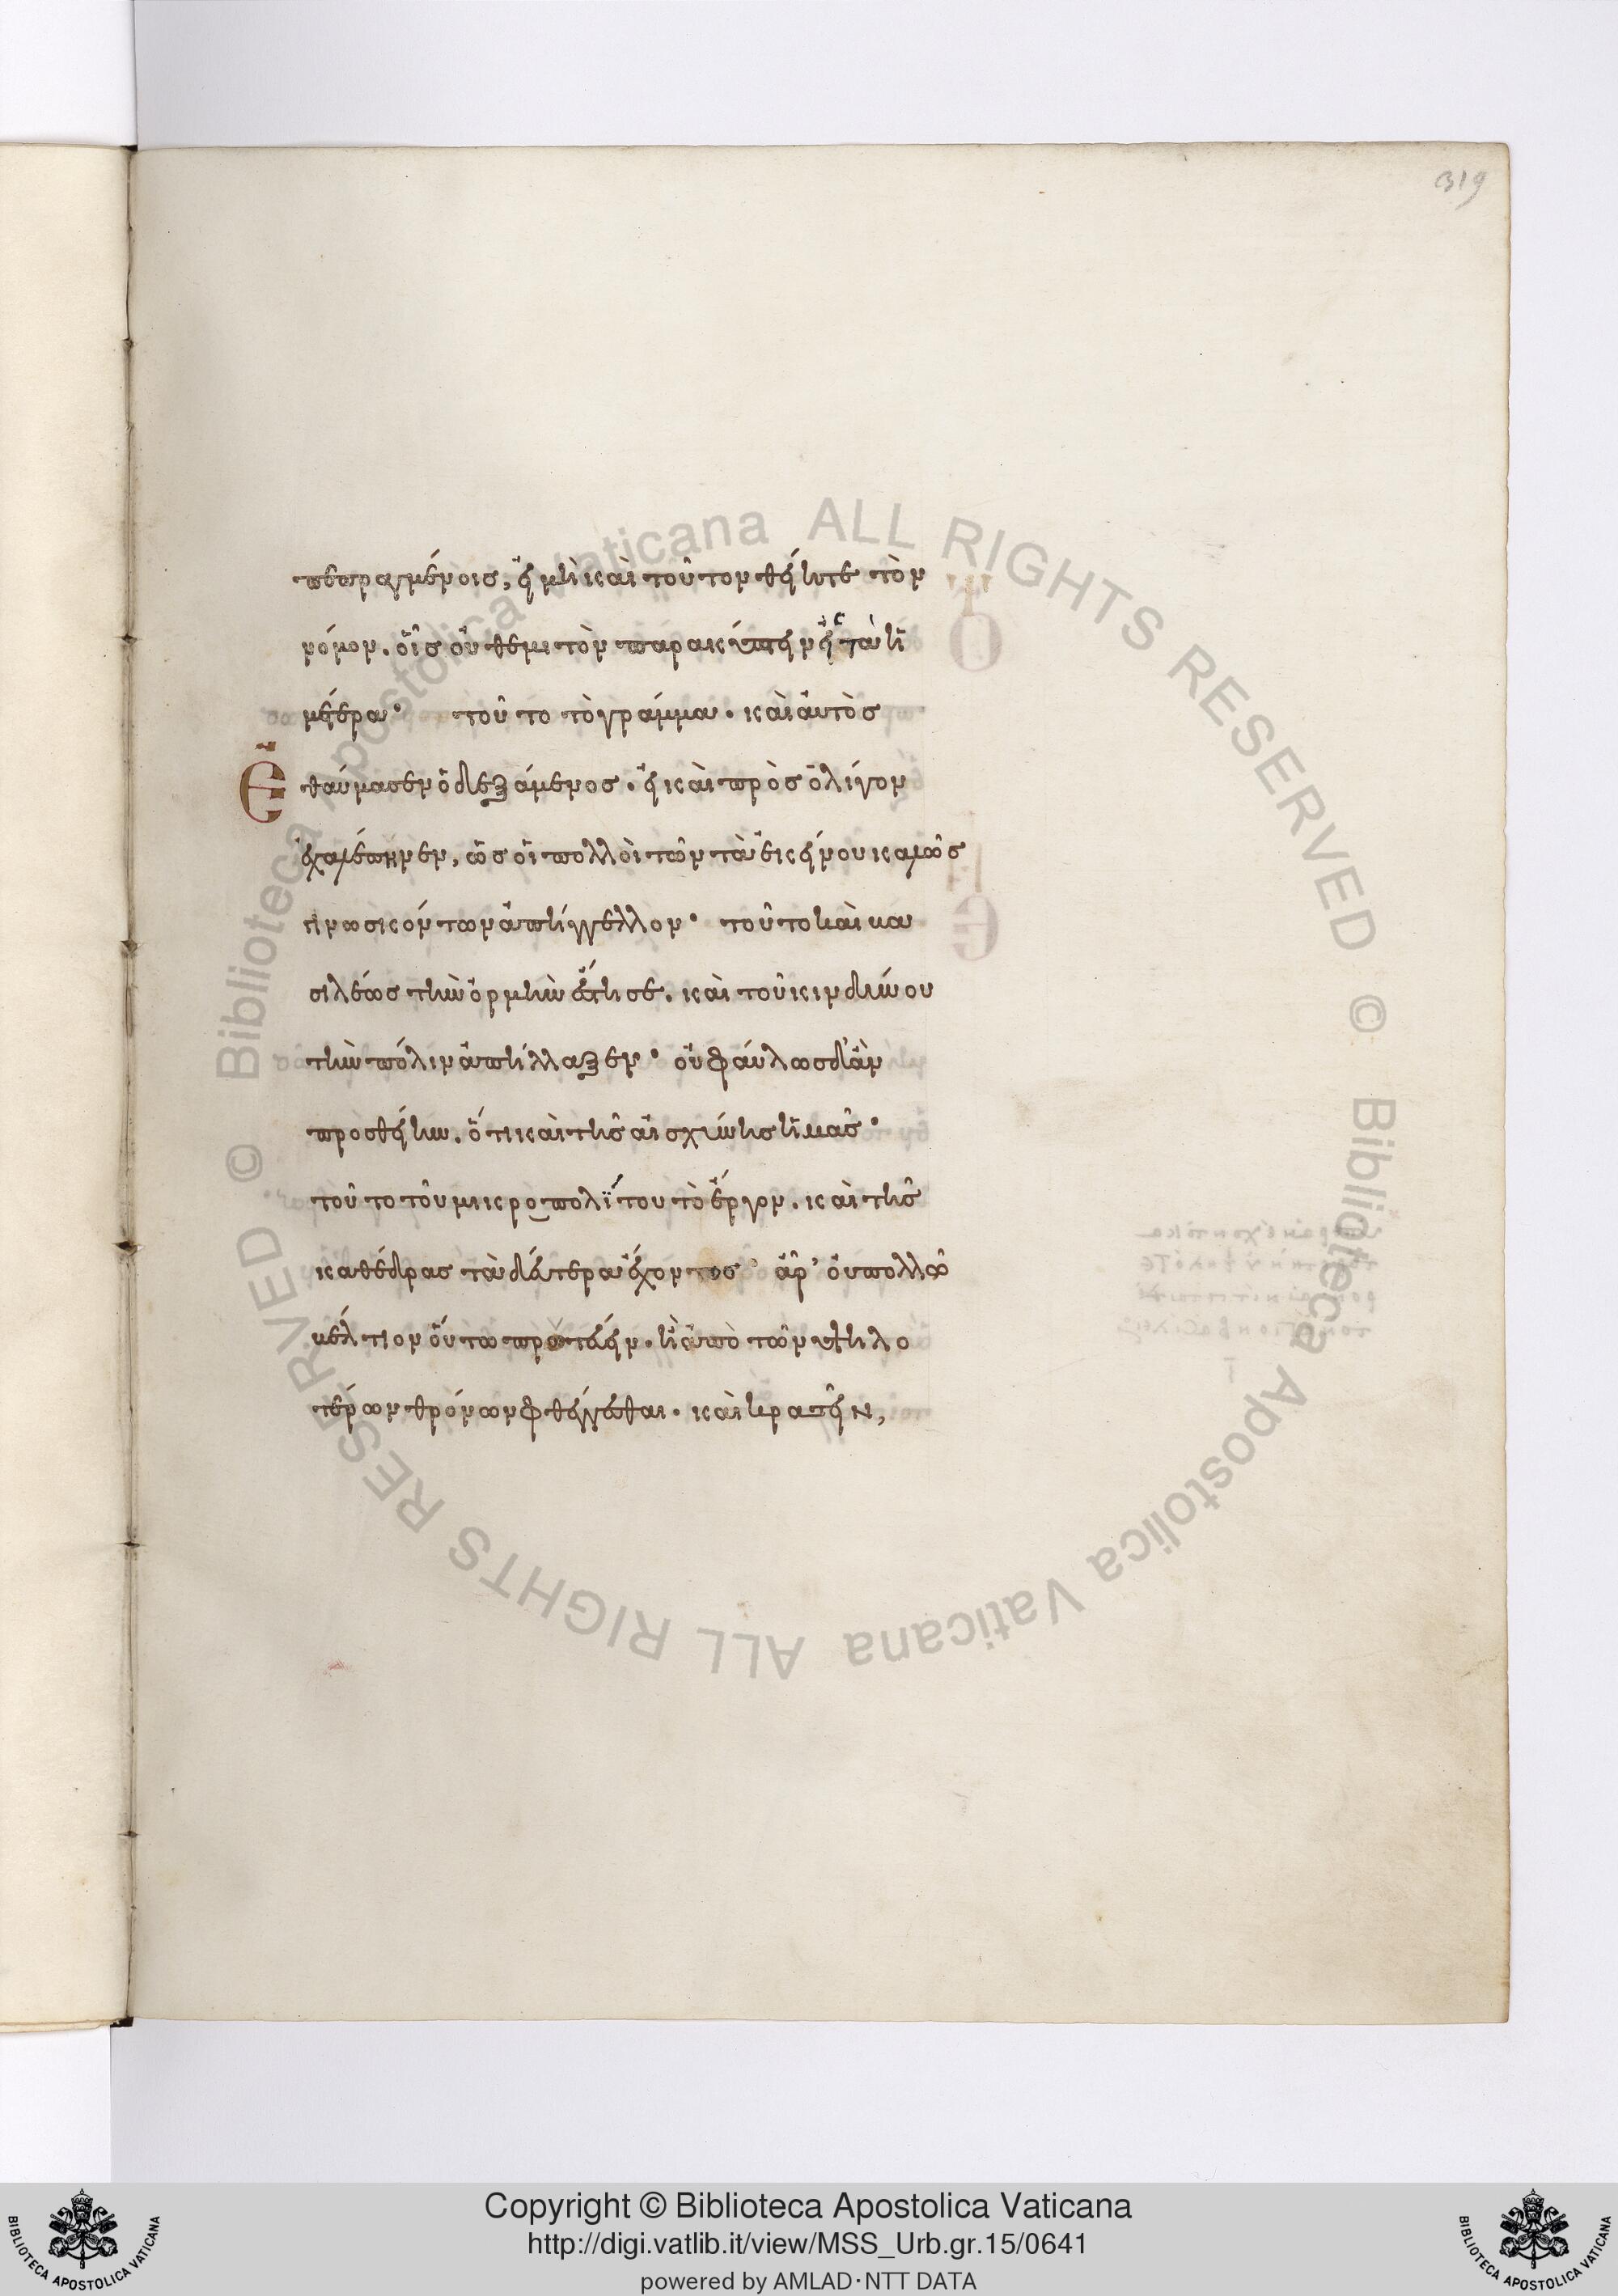 319
πεπραγμένοις, εἰ μὴ καὶ τοῦτον θείητε τὸν
νόμον. οἷς οὐ θεμιτὸν παρακύπτειν εἰς τὰ ἡ
μέτερα· τοῦτο τὸ γράμμα. καὶ αὐτὸς
Ἐθαύμασεν ὁ δεξάμενος. εἰ καὶ πρὸς ὀλίγον
ἐχαλέπηνεν, ὡς οἱ πολλοὶ τῶν τὰ ἐκείνου καλῶς
γινωσκόντων ἀπήγγελλον· τοῦτο καὶ βα
σιλέως τὴν ὁρμὴν ἔστησε. καὶ τοῦ κινδύνου
τὴν πόλιν ἀπήλλαξεν· οὐ φαύλως δ' ἂν
προσθείην. ὅτι καὶ τῆς αἰσχύνης ἡμᾶς·
τοῦτο τοῦ μικροπολίτου τὸ ἔργον. καὶ τῆς
καθέδρας τὰ δεύτερα ἔχοντος ἆρ' οὐ πολλῷ
βέλτιον οὕτω πράττειν. ἢ ἀπὸ τῶν ὑψηλο
τέρων θρόνων φθέγγεσθαι. καὶ κρατεῖν,
Copyright © Biblioteca Apostolica Vaticana
http://digi.vatlib.it/view/MSS_Urb.gr.15/0641
powered by AMLAD·NTT DATA
BIBLIOTECA APOSTOLICA VATICANA
BIBLIOTECA APOSTOLICA VATICANA
© Biblioteca Apostolica Vaticana ALL RIGHTS RESERVED
© Biblioteca Apostolica Vaticana ALL RIGHTS RESERVED